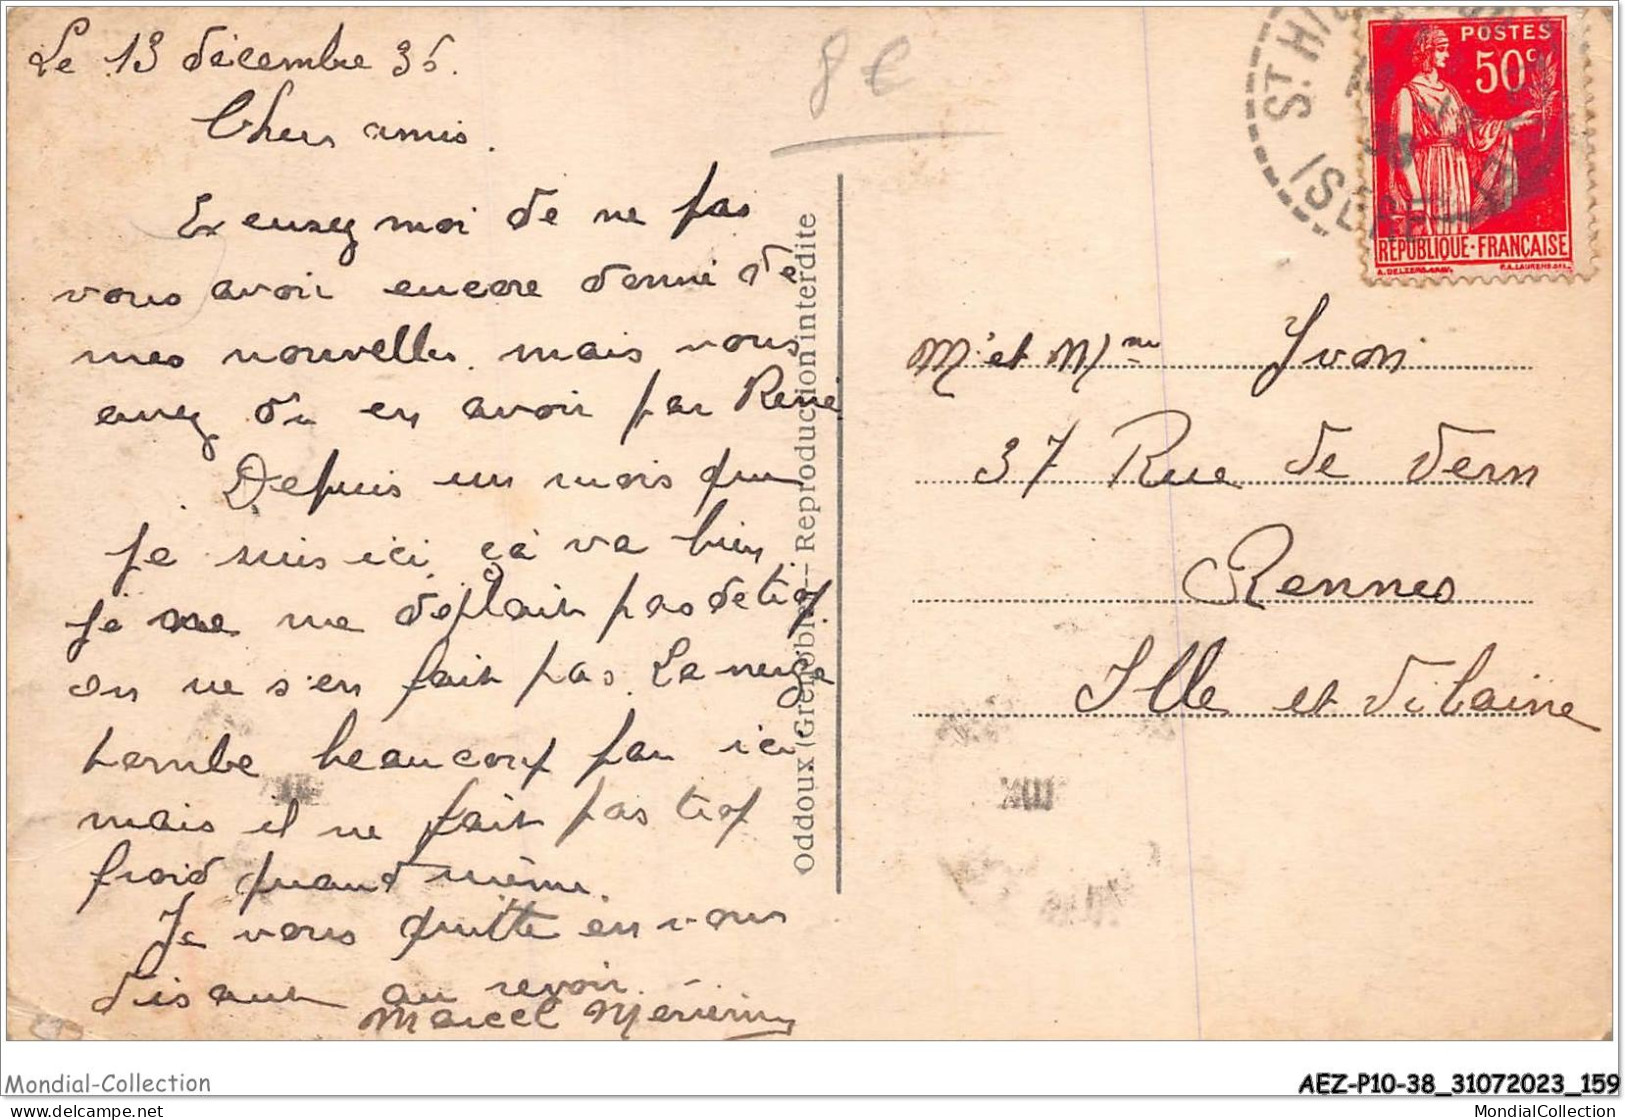 Le 13 décembre 36.
Chers amis.
Excusez moi de ne pas
vous avoir encore donné de
mes nouvelles. mais vous
avez du en avoir par René
Depuis un mois que
je suis ici. ça va bien
je me déplait pas de trop
on ne s'en fait pas. La neige
tombe beaucoup par ici
mais il ne fait pas trop
froid quand même.
Je vous quitte en vous
disant au revoir.
Marcel
8€
Oddoux (Grenoble) — Reproduction interdite
ST HI
ISERE
POSTES
50c
REPUBLIQUE·FRANÇAISE
Mr et Mme Yvon
37 Rue de Vern
Rennes
Ille et Vilaine
Mondial-Collection
AEZ-P10-38_31072023_159
delcampe.net
MondialCollection